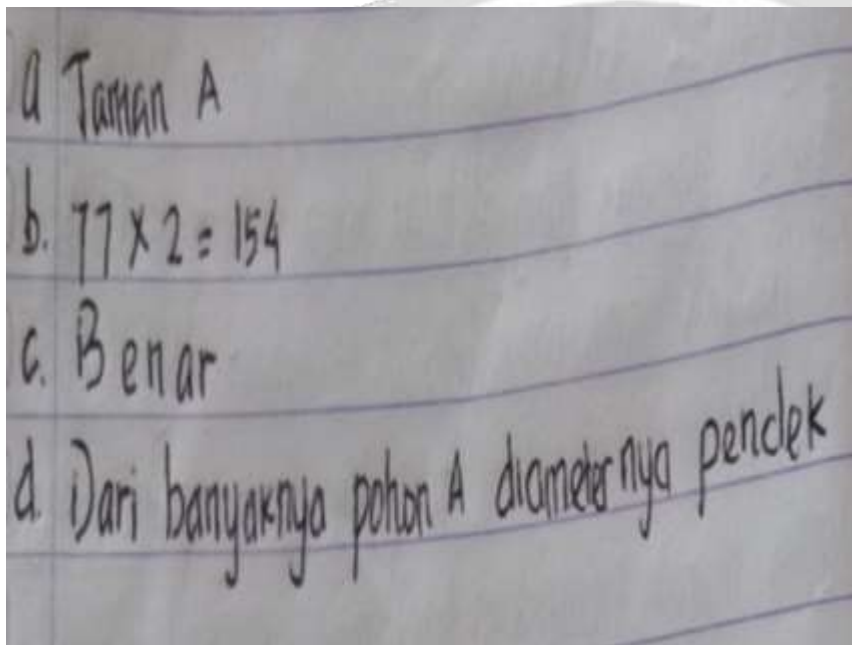 a Taman A
b. 77 x 2 = 154
c. Benar
d. Dari banyaknya pohon A diameternya pendek